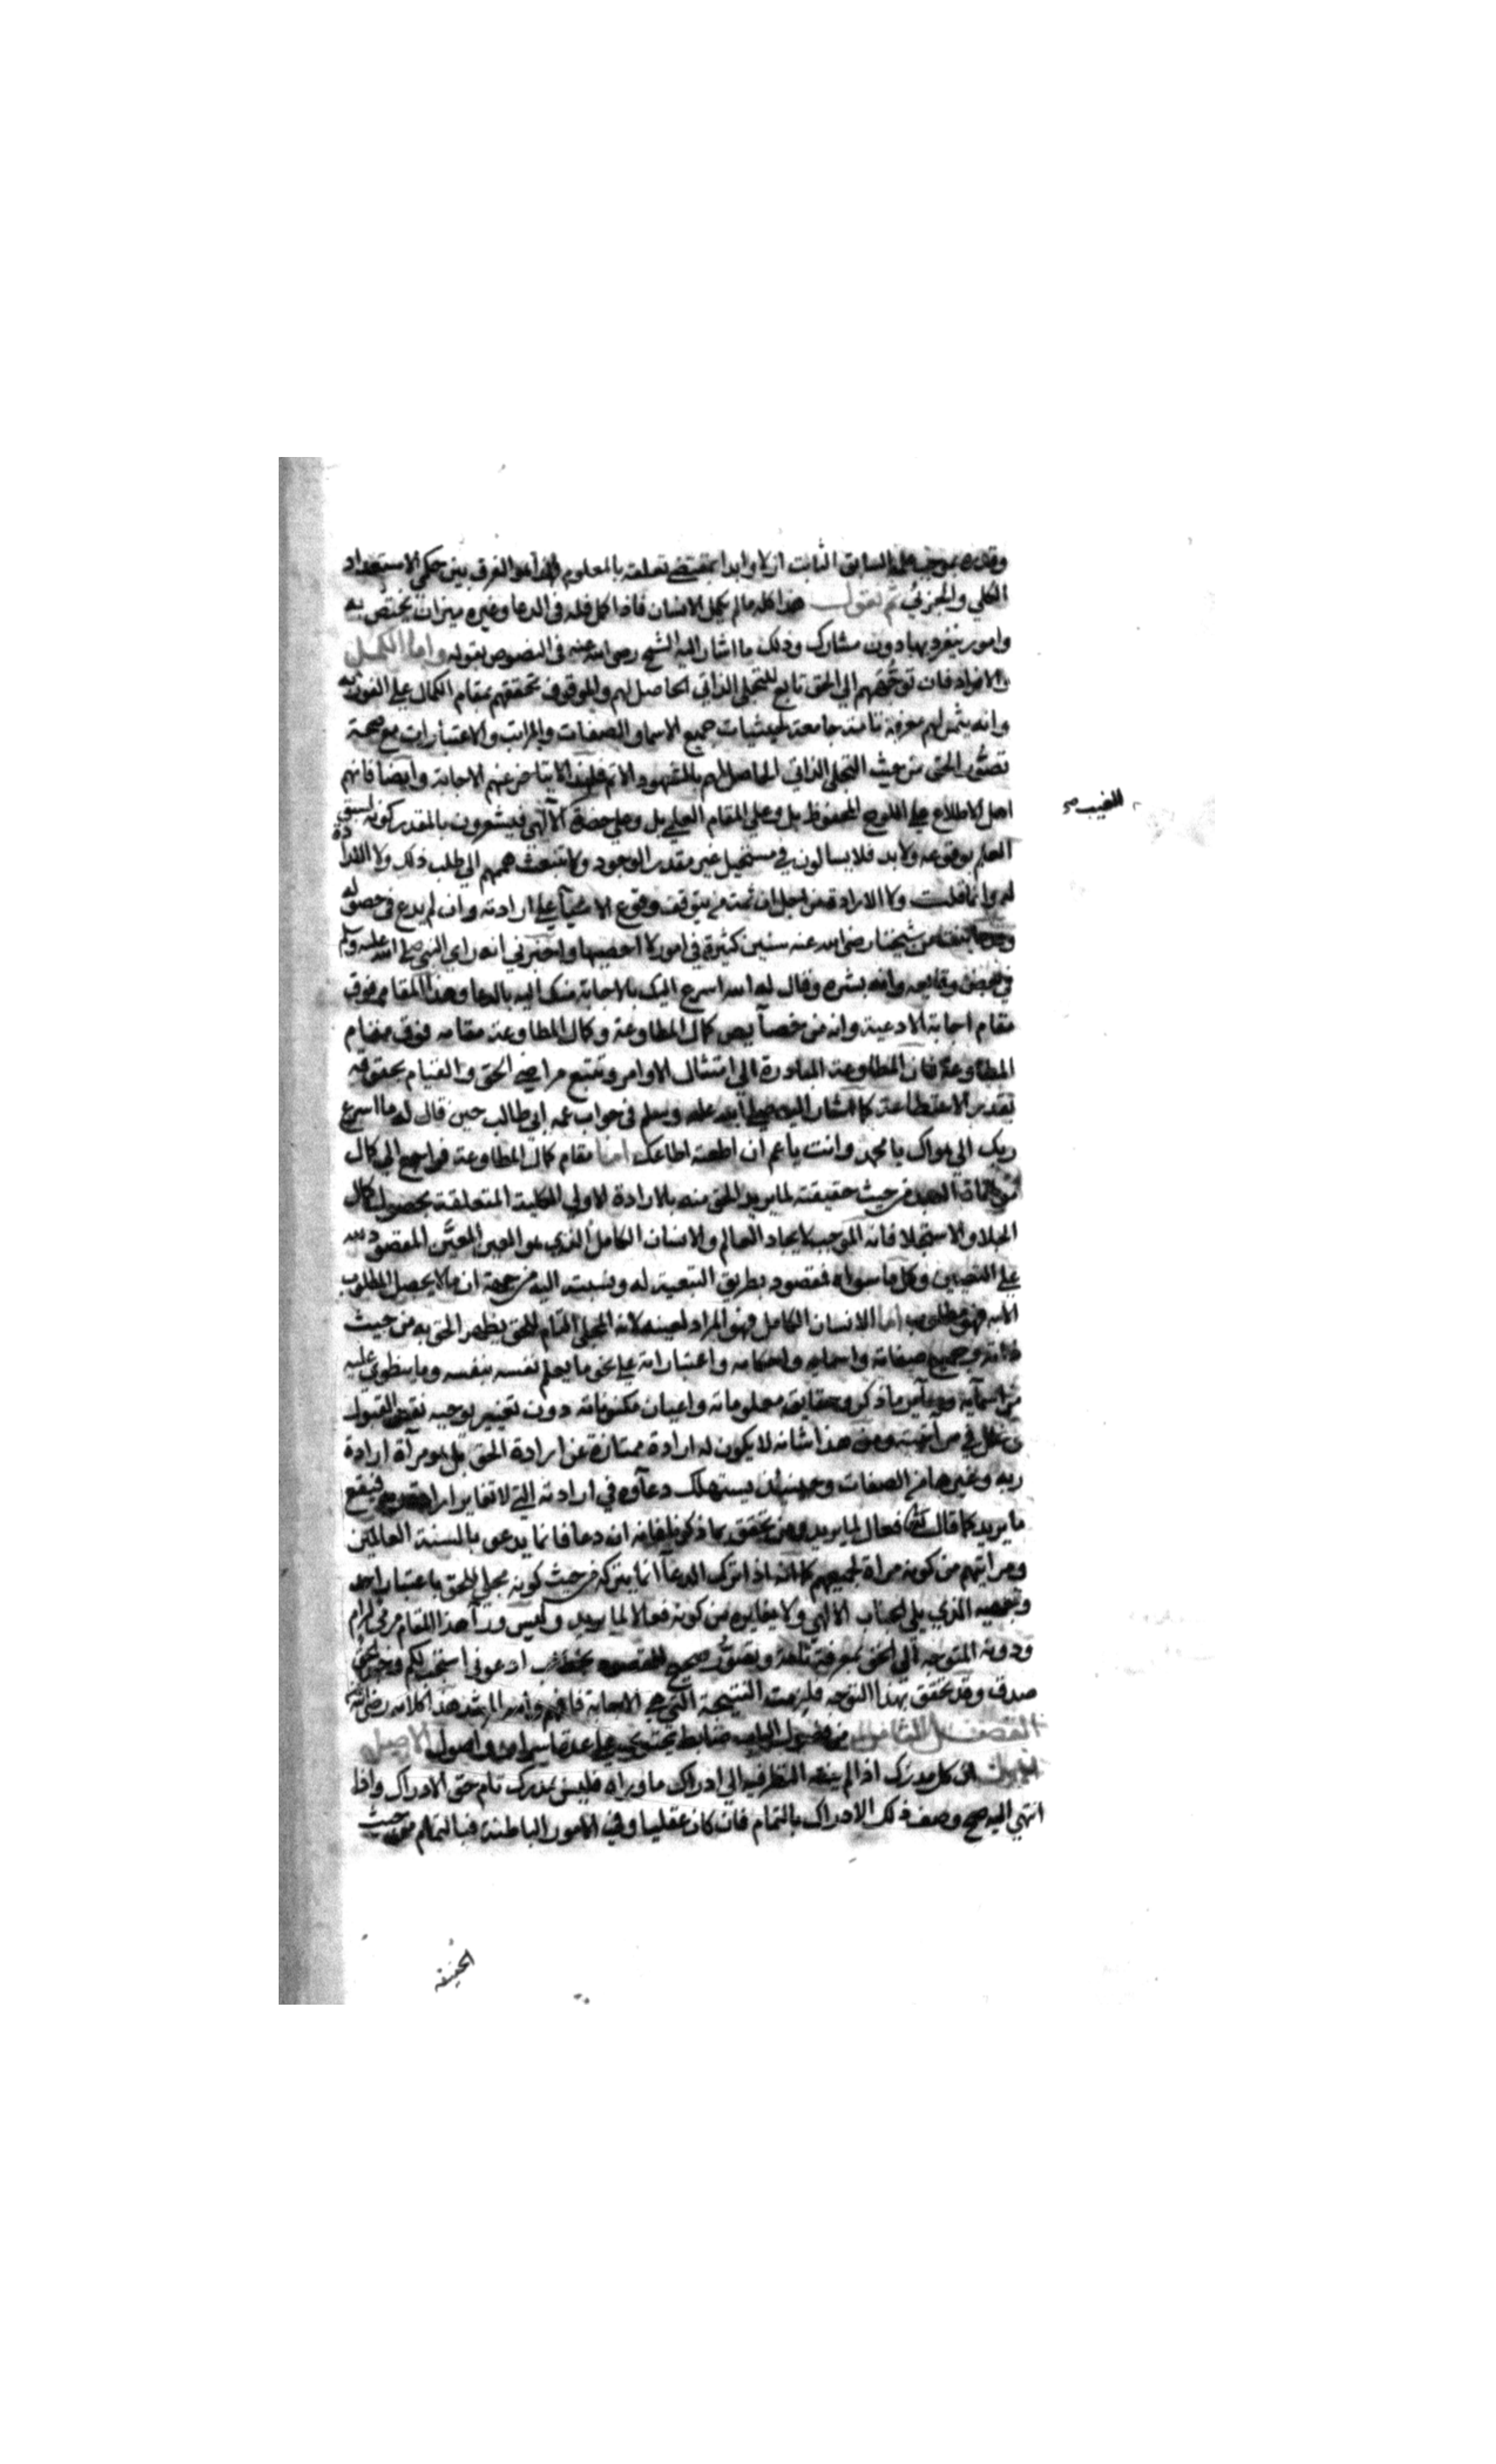 وقدره بموجب علمه السابق الثابت ازلا وابدا بمقتضى تعلقه بالمعلوم فهذا هو الفرق بين حكمي الاستعداد
الكلي والجزئي ثم نقول هذا كله ما لم يكمل الانسان فاذا كمل فله في الدعا وغيره ميزان يختص به
وامور ينفرد بها دون مشارك وذلك ما اشار اليه الشيخ رضي الله عنه في النصوص بقوله واما الكمل
والافراد فان توجههم الي الحق تابع للتجلي الذاتي الحاصل لهم والموقوف تحققهم بمقام الكمال علي الفوز به
وانه يثمر لهم معرفة تامة جامعة لحيثيات جميع الاسما والصفات والمراتب والاعتبارات مع صحة
تصور الحق من حيث التجلي الذاتي الحاصل لهم بالشهود الاتم فلهذا لا يتاخر عنهم الاجابة وايضا فانهم
اهل الاطلاع علي اللوح المحفوظ بل وعلي المقام العلي بل وعلي حضرة الالهي فيشعرون بالمقدر كونه لسبق
للغيب صح
العلم بوقوعه ولا بد فلا يسالون في مستحيل غير مقدر الوجود ولا تنبعث هممهم الي طلب ذلك ولا الارادة
له وانما قلت ولا الارادة من اجل ان ثمة من يتوقف وقوع الاشيآ علي ارادته وان لم يدع في حصوله
شيخنا رضي الله عنه سنين كثيرة في امور لا احصيها واخبرني انه راي النبي صلي الله عليه وسلم
في بعض وقايعه وانه بشره وقال له الله اسرع اليك بالاجابة منك اليه بالدعا وهذا المقام فوق
مقام اجابة الادعية وانه من خصآيص كمال المطاوعة وكمال المطاوعة مقامه فوق مقام
المطاوعة فان المطاوعة المبادرة الي امتثال الاوامر وتتبع مراضي الحق والقيام بحقوقه
بقدر الاستطاعة كما اشار اليه صلي الله عليه وسلم في جواب عمه ابي طالب حين قال له ما اسرع
ربك الي هواك يا محمد وانت يا عم ان اطعته اطاعك اما مقام كمال المطاوعة فراجع الي كمال
العبد من حيث حقيقته لما يريد الحق منه بالارادة الاولي الكلية المتعلقة بحصول كمال
الجلا والاستجلا فانه الموجب لايجاد العالم والانسان الكامل الذي هو العين المعيّن المقصود لله
علي التعيين وكل ما سواه فمقصود بطريق التبعية له وبسببه اليه من جهة ان ما لا يحصل المطلوب
الا به فهو مطلوب اما الانسان الكامل فهو المراد لعينه لانه المجلي التام للحق يظهر الحق به من حيث
ذاته وجميع صفاته واسمايه واحكامه واعتباراته علي نحو ما يعلم نفسه بنفسه وما ينطوي عليه
من اسمآيه وسآير ما ذكر وحقايق معلوماته واعيان مكنوناته دون تغيير يوجبه نقص القبول
وخلل في مرآتيته ومن هذا شانه لا يكون له ارادة ممتازة عن ارادة الحق بل هو مرآة ارادة
ربه وغيرها من الصفات وحينئذ يستهلك دعآوه في ارادته التي لا تغاير ارادة ربه فيقع
ما يريد كما قال تعالى فعال لما يريد ومن تحقق بما ذكرنا فانه ان دعا فانما يدعو بالسنة العالمين
ومراتبهم من كونه مراة لجميعهم كما انه اذا ترك الدعآ انما يتركه من حيث كونه مجلي للحق باعتبار احد
وجهيه الذي يلي الجناب الالهي ولا يغايره من كونه فعالا لما يريد وليس ورآ هذا المقام مرمي لرام
ودونه المتوجه الي الحق بمعرفة تامة وتصور صحيح المقصود بخطاب ادعوني استجب لكم
صدق وقد تحقق بهذا التوجه فلزمت النتيجة التي هي الاجابة فافهم والله المرشد هذا كلامه رضي الله عنه
الفصل الثامن من فصول الباب ضابط يحتوي علي عدة اسرار واصول الاصل
ان كل مدرك اذا لم ينته النظر فيه الي ادراك ما وراه فليس بمدرك تام حق الادراك واذا
انتهي اليه صح وصف ذلك الادراك بالتمام فان كان عقليا وفي الامور الباطنة فبالتمام من حيث
الحقيقة